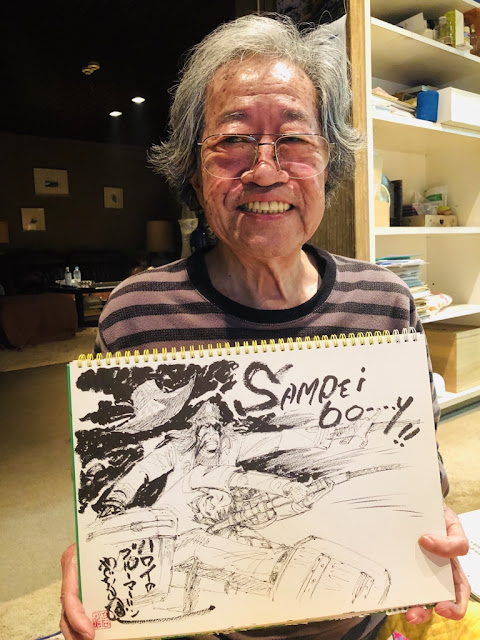 SAMPEi
bo----y!!
ハワイの
ブルーマーリン